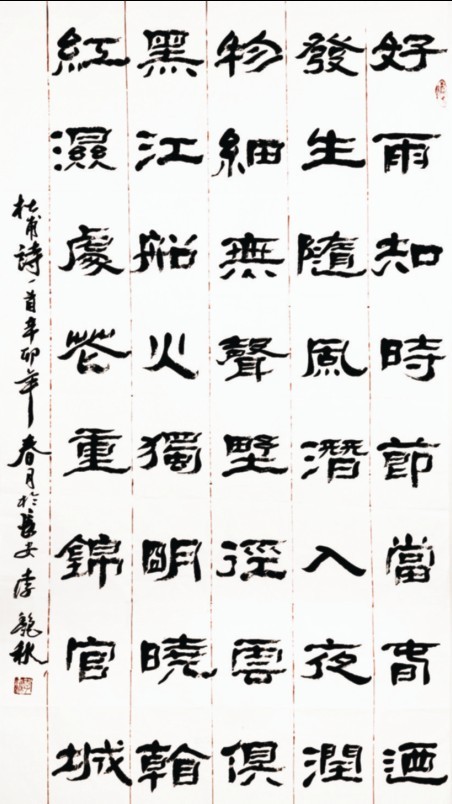 好雨知時節當春迺
發生隨風潛入夜潤
物細無聲野徑雲俱
黑江船火獨明曉看
紅濕處花重錦官城
杜甫詩一首辛卯年春月於長安李秋